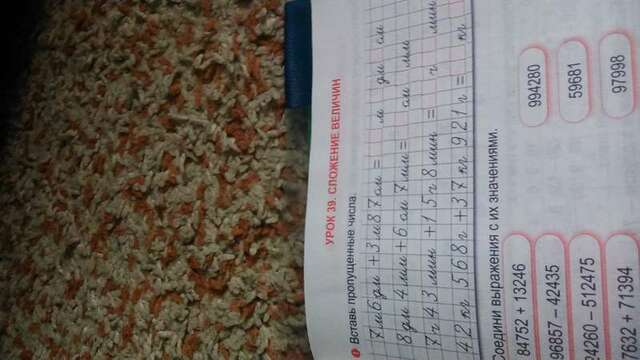 УРОК 39. СЛОЖЕНИЕ ВЕЛИЧИН
1 Вставь пропущенные числа.
7м6дм + 3м87см = м дм см
8дм 4мм + 6см 7мм = см мм
7ч 43мин + 15ч 8мин = ч мин
42 кг 568г + 37 кг 921г = кг
Соедини выражения с их значениями.
84752 + 13246
994280
96857 – 42435
59681
4260 – 512475
97998
632 + 71394